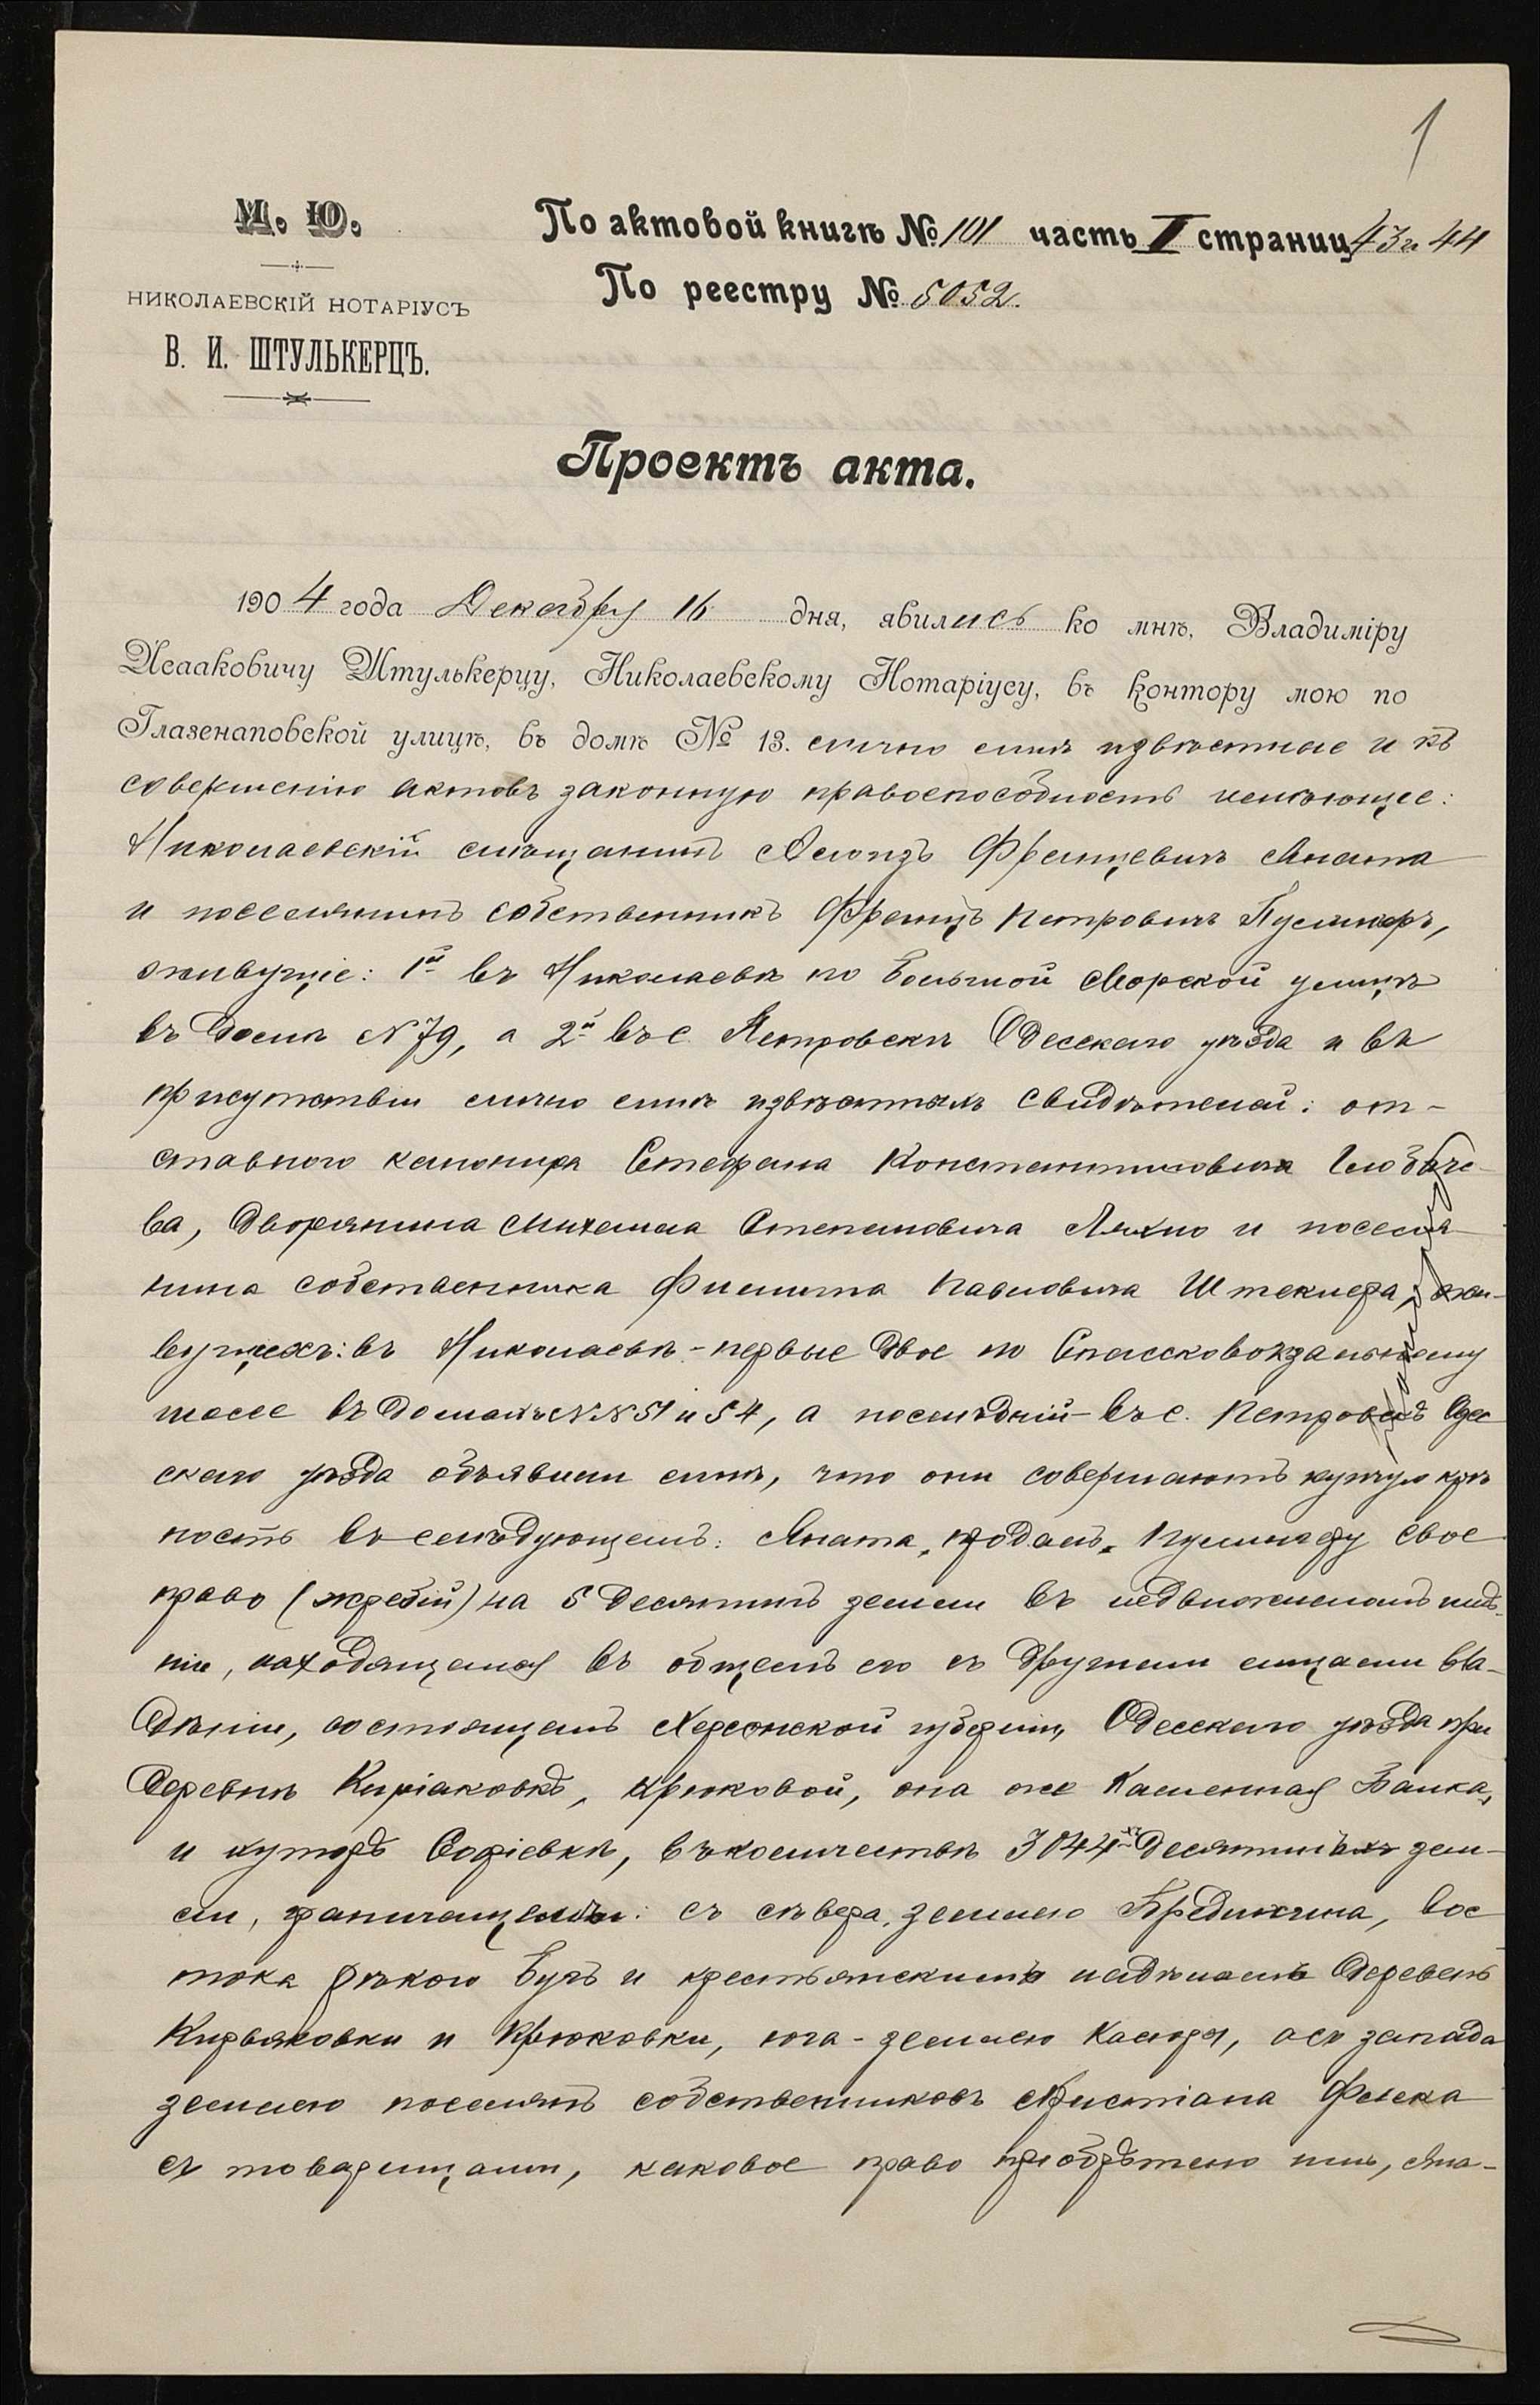 1
М. Ю.
НИКОЛАЕВСКІЙ НОТАРІУСЪ
В. И. ШТУЛЬКЕРЦЪ.
По актовой книгѣ № 101 часть II страниц 43 и 44
По реестру № 5052.
Проектъ акта.
1904 года Декабря 16 дня, явились ко мнѣ, Владиміру
Исааковичу Штулькерцу, Николаевскому Нотаріусу, въ контору мою по
Глазенаповской улицѣ, въ домѣ № 13. лично мнѣ извѣстные и къ
совершенію актовъ законную правоспособность имѣющіе:
Николаевскій мѣщанинъ Алоизъ Францевичъ Яната
и поселянинъ собственникъ Францъ Петровичъ Пуллиперъ,
живущіе: 1й въ Николаевѣ по Большой Морской улицѣ
въ домѣ № 79, а 2й въ с. Петровскѣ Одесскаго уѣзда и въ
присутствіи лично мнѣ извѣстныхъ свидѣтелей: от-
ставного канонира Стефана Константиновича
ва, дворянина Михаила Степановича Ляхно и поселя-
нина собственника Филиппа Павловича Штеклера, жи-
вущихъ: въ Николаевѣ - первые двое по Спассковокзальному
шоссе въ домахъ №№ 51 и 54, а послѣдній - въ с. Петровскѣ Одес
скаго уѣзда объявили мнѣ, что они совершаютъ купчую крѣ
пость въ слѣдующемъ: Яната, продалъ, свое
право (жребій) на 5 десятинъ земли въ недвижимомъ имѣ-
ніи, находящемся въ общемъ его съ другими лицами вла-
дѣніи, состоящемъ Херсонской губерніи, Одесскаго уѣзда при
деревнѣ Киріаковкѣ, Крюковой, она же Каменная Балка,
и хуторѣ Софіевкѣ, въ количествѣ 3044хъ десятинъ зем-
ли, граничащемъ: съ сѣвера, землею Бредихина, вос
тока рѣкою Бугъ и крестьянскимъ надѣломъ деревень
Кирьяковки и Крюковки, юга - землею Касюры, а съ запада
землею поселянъ собственниковъ Христіана Флека
съ товарищами, каковое право пріобрѣтено имъ, Яна-